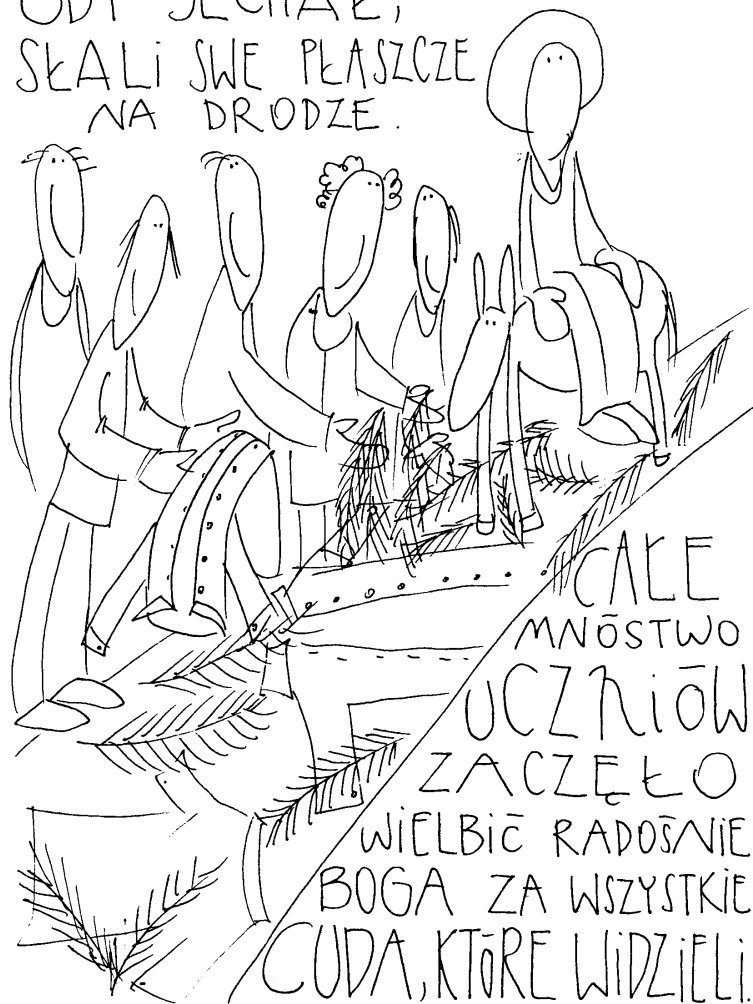 GDY JECHAŁ,
SŁALI SWE PŁASZCZE
NA DRODZE.
CAŁE
MNÓSTWO
UCZNIÓW
ZACZĘŁO
WIELBIĆ RADOŚNIE
BOGA ZA WSZYSTKIE
CUDA, KTÓRE WIDZIELI.